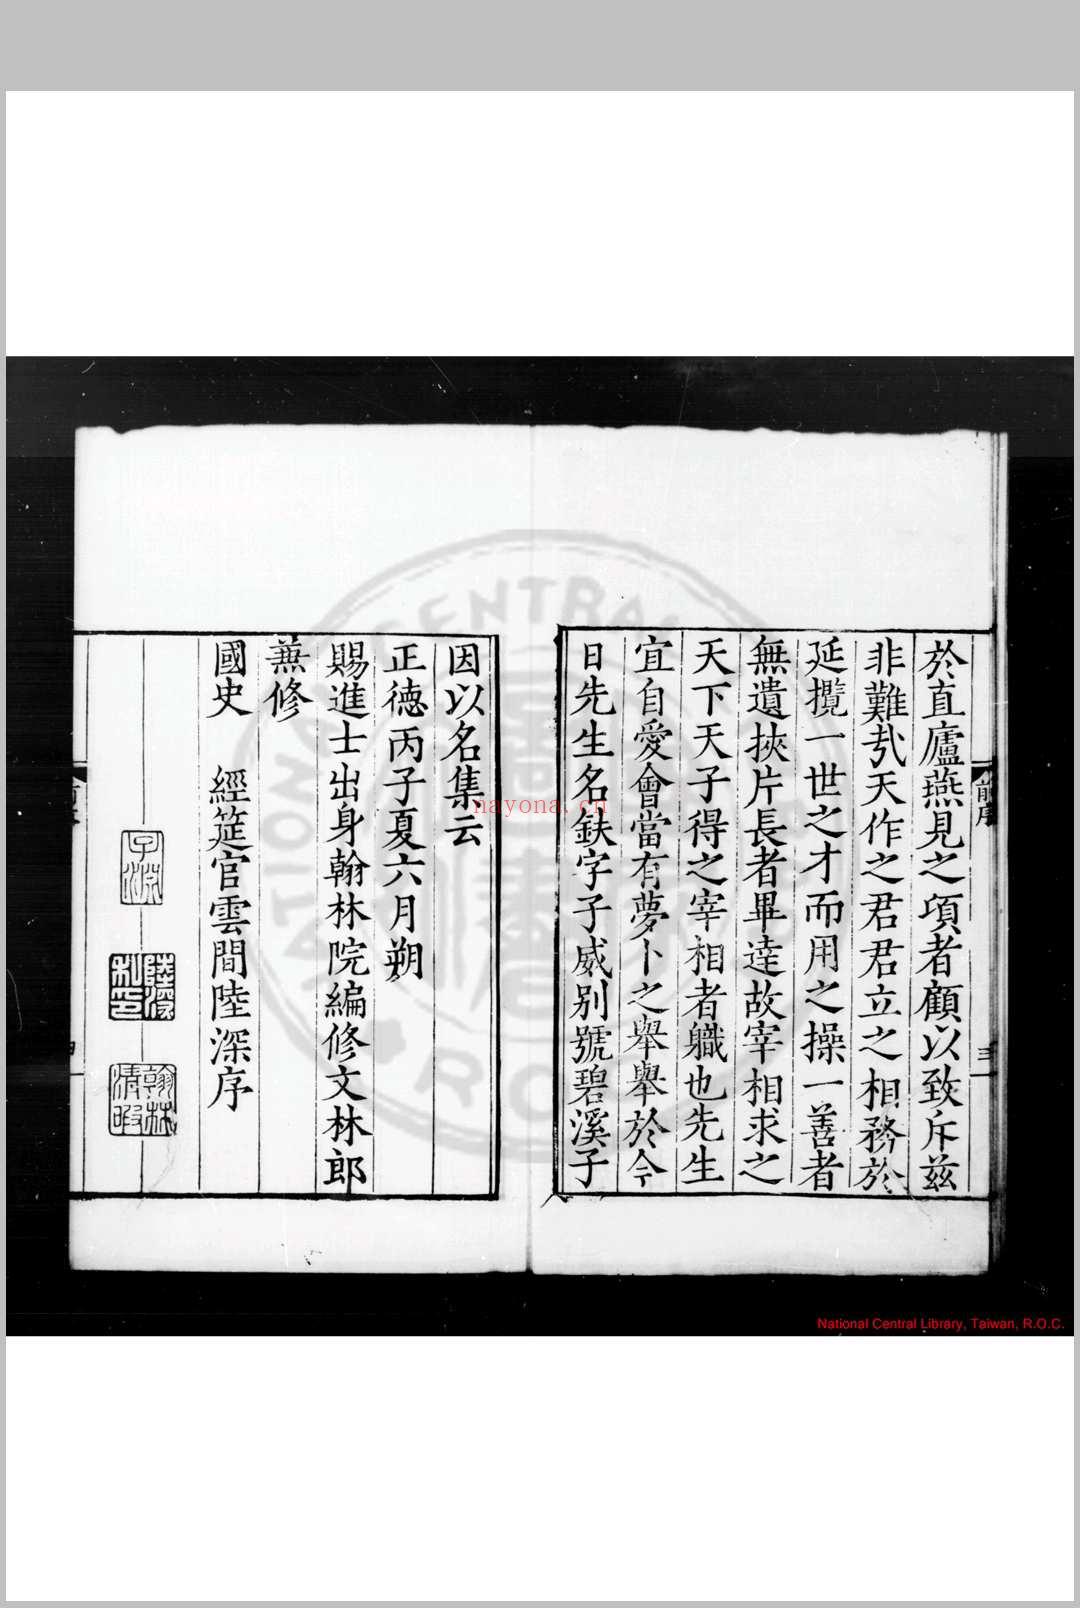 於直廬燕見之項者顧以致斥茲
非難㢤天作之君君立之相務於
延攬一世之才而用之操一善者
無遺挾片長者畢達故宰相求之
天下天子得之宰相者軄也先生
宜自愛會當有夢卜之舉舉於今
日先生名鈇字子威别號碧溪子
前序
三
因以名集云
正德丙子夏六月朔
賜進士出身翰林院編修文林郎
蕪修
國史 經筵官雲間陸深序
子淵
陸深私印
翰林清暇
NATIONAL CENTRAL
nayona.cn
National Central Library, Taiwan, R.O.C.